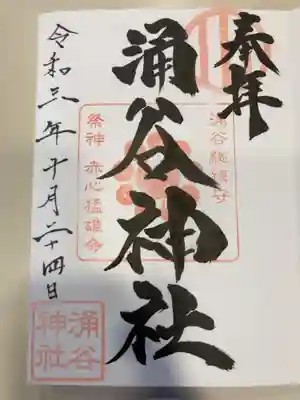 奉拝
涌谷総鎮守
涌谷神社
祭神 赤心猛雄命
令和三年十月二十四日
涌谷
神社